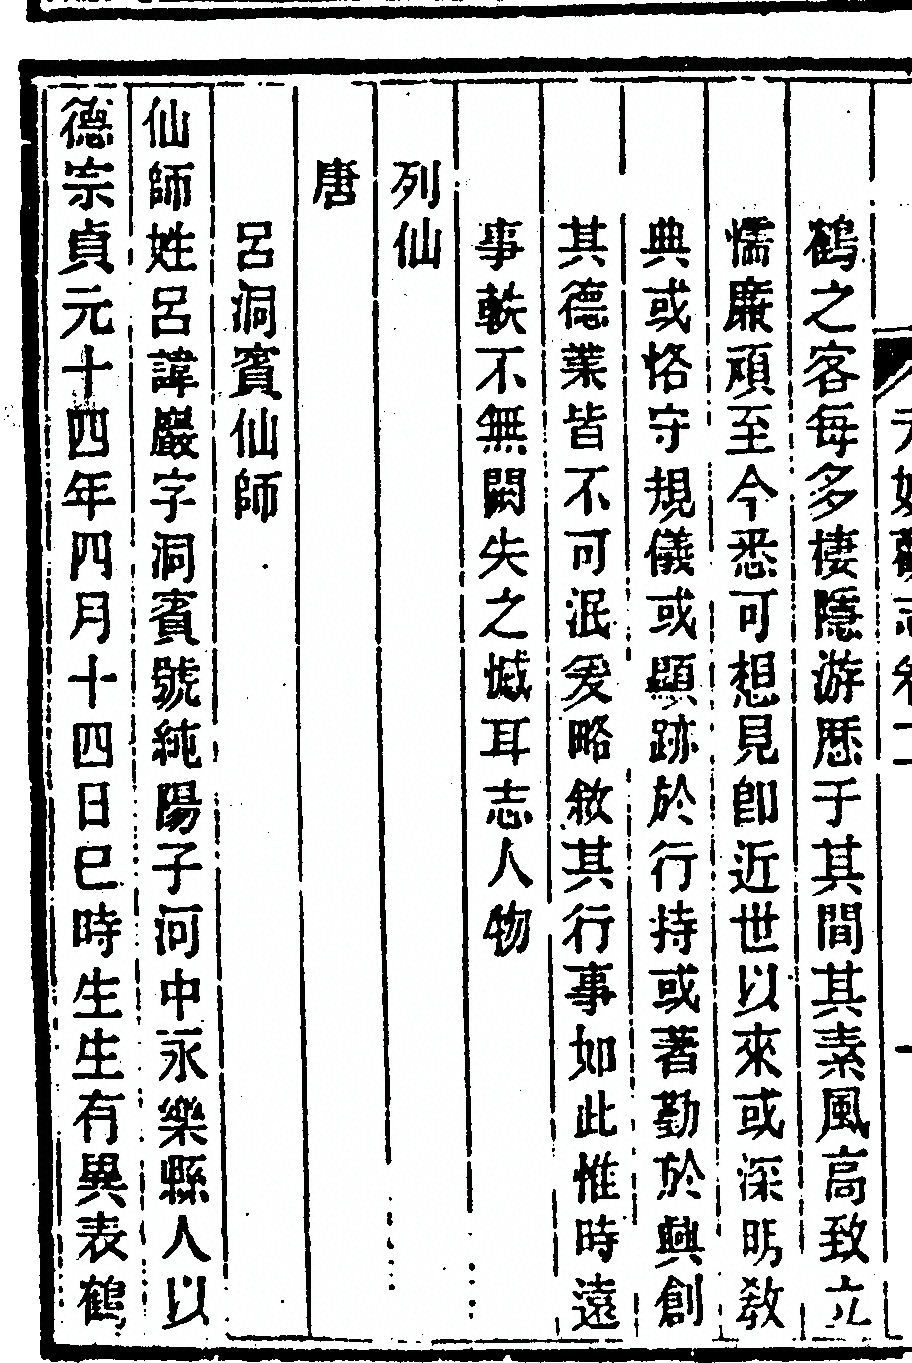 鶴之客每多棲隱游歷于其間其素風高致立
懦廉頑至今悉可想見卽近世以來或深明教
典或恪守規儀或顯跡於行持或著勤於興創
其德業皆不可泯爰略敘其行事如此惟時遠
事軼不無闕失之憾耳志人物
列仙
唐
呂洞賓仙師
仙師姓呂諱巖字洞賓號純陽子河中永樂縣人以
德宗貞元十四年四月十四日巳時生生有異表鶴